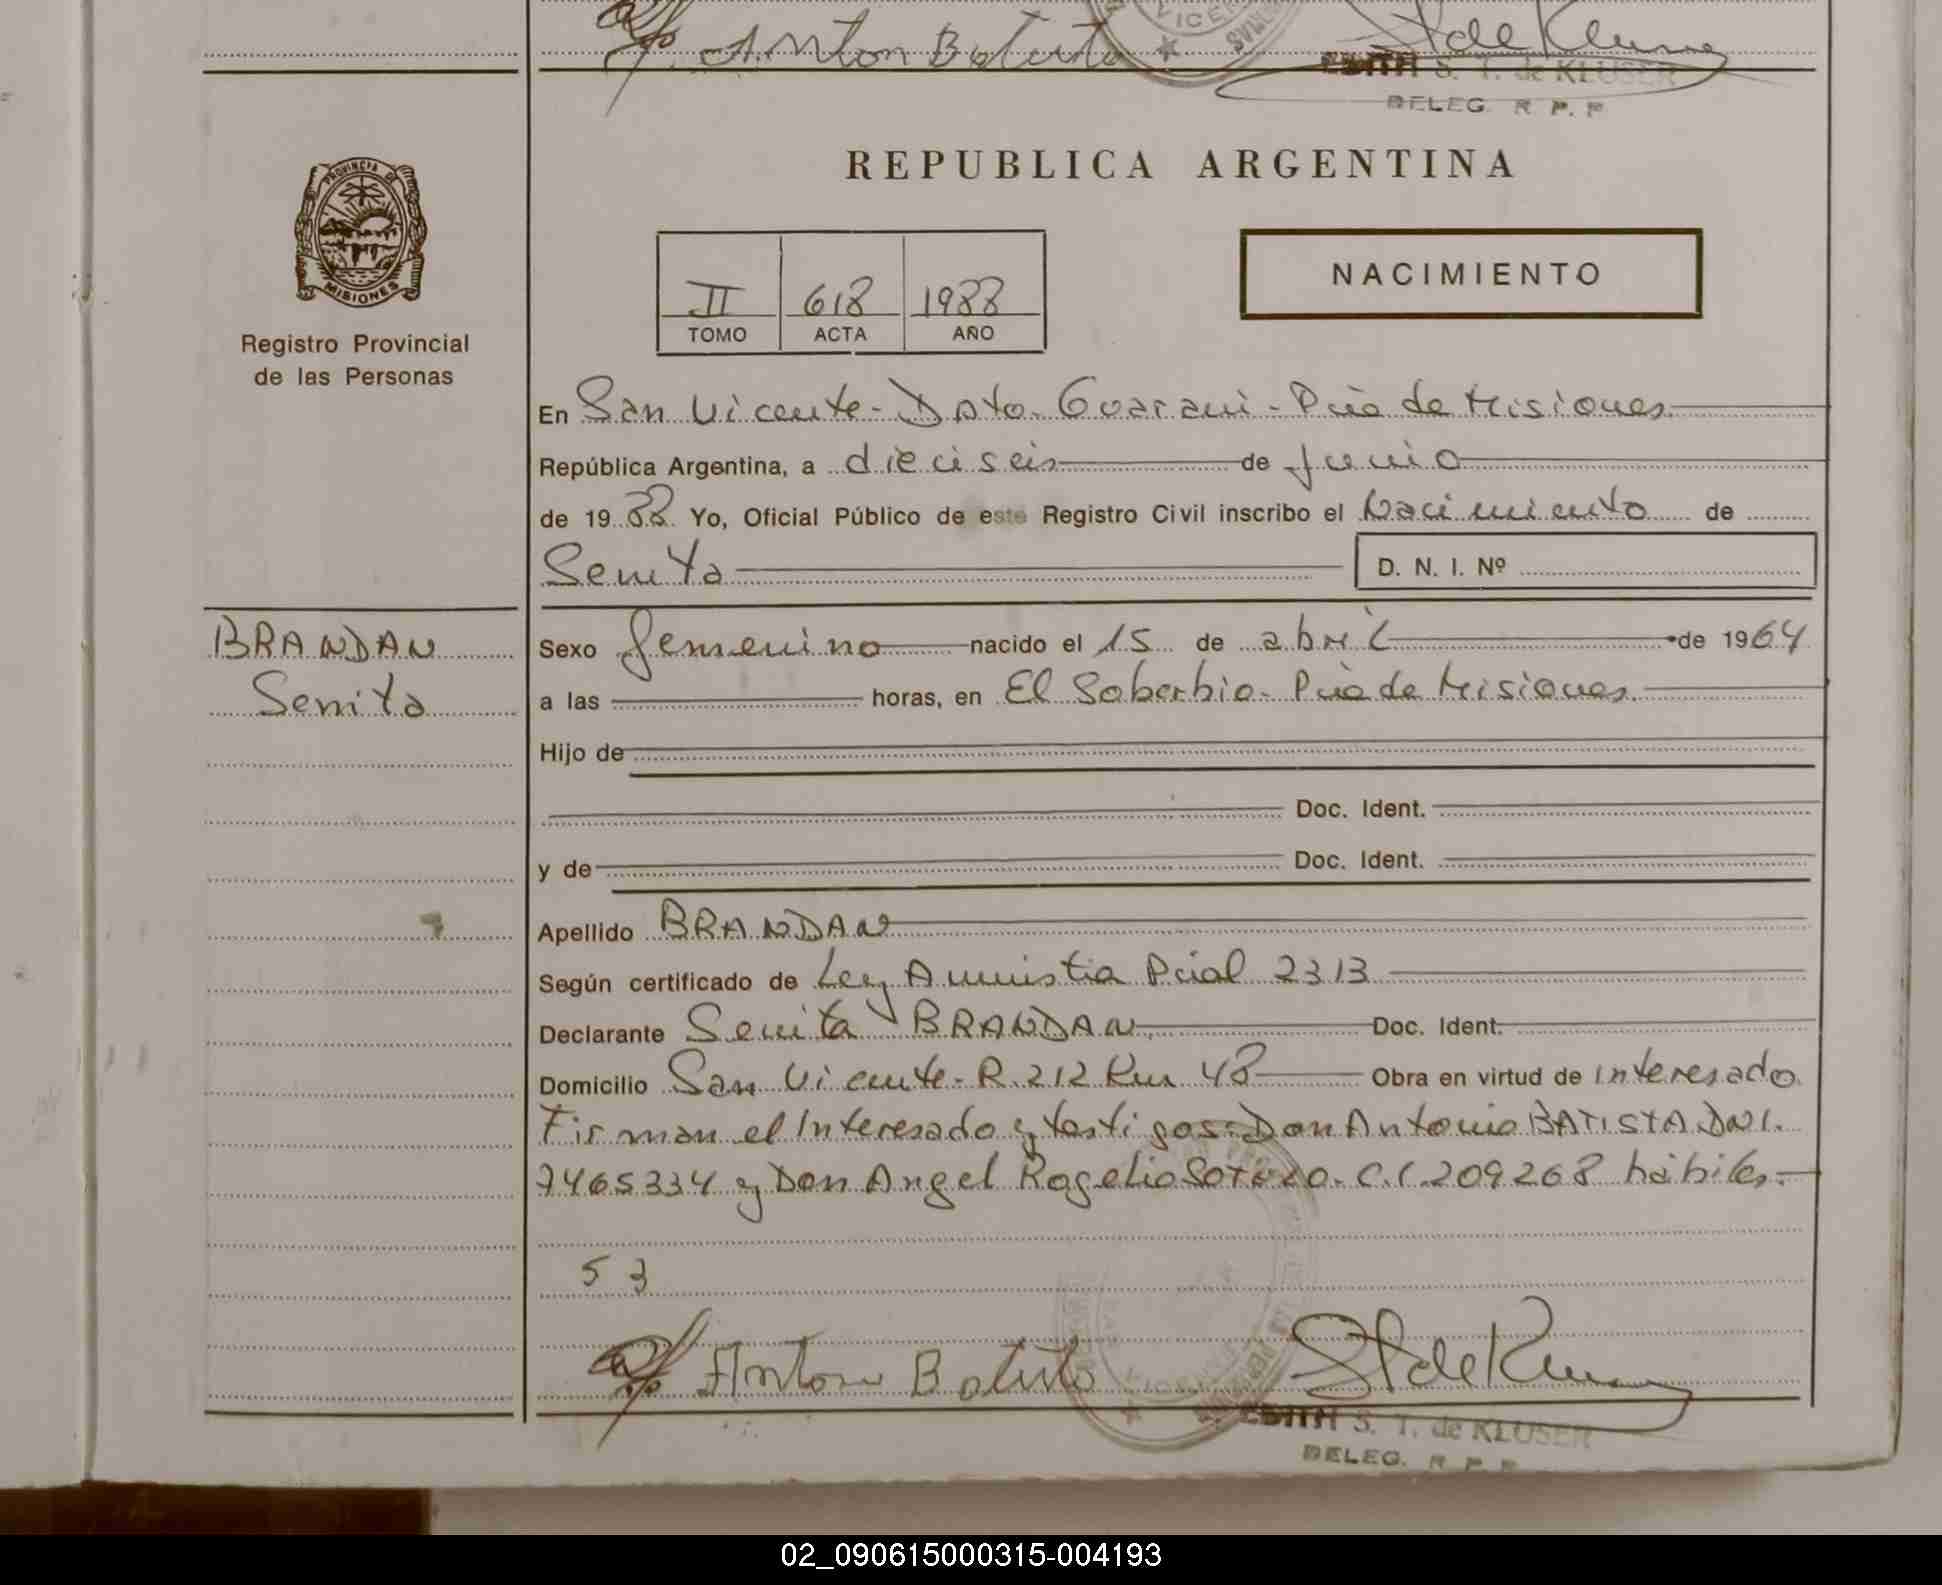 Anton Batista
EDITH S. T. de KLUSER
DELEG. R. P. P.
PROVINCIA DE
MISIONES
Registro Provincial
de las Personas
REPUBLICA ARGENTINA
II 618 1988
TOMO ACTA AÑO
NACIMIENTO
En San Vicente - Dpto. Guarani - Pcia de Misiones
República Argentina, a dieciseis de Junio
de 1988 Yo, Oficial Público de este Registro Civil inscribo el Nacimiento de
Senita D. N. I. Nº
BRANDAN
Senita
Sexo femenino nacido el 15 de abril de 1964
a las horas, en El Soberbio - Pcia de Misiones.
Hijo de
Doc. Ident.
y de Doc. Ident.
Apellido BRANDAN
Según certificado de Ley Amnistia Pcial 2313
Declarante Senita BRANDAN Doc. Ident.
Domicilio San Vicente - R. 212 Km 48 Obra en virtud de Interesado
Firman el Interesado y testigos: Don Antonio BATISTA D.N.I.
7465334 y Don Angel Rogelio - C.I. 209268 hábiles.-
53
Antonio Batista
EDITH S. T. de KLUSER
DELEG. R. P. P.
02_090615000315-004193